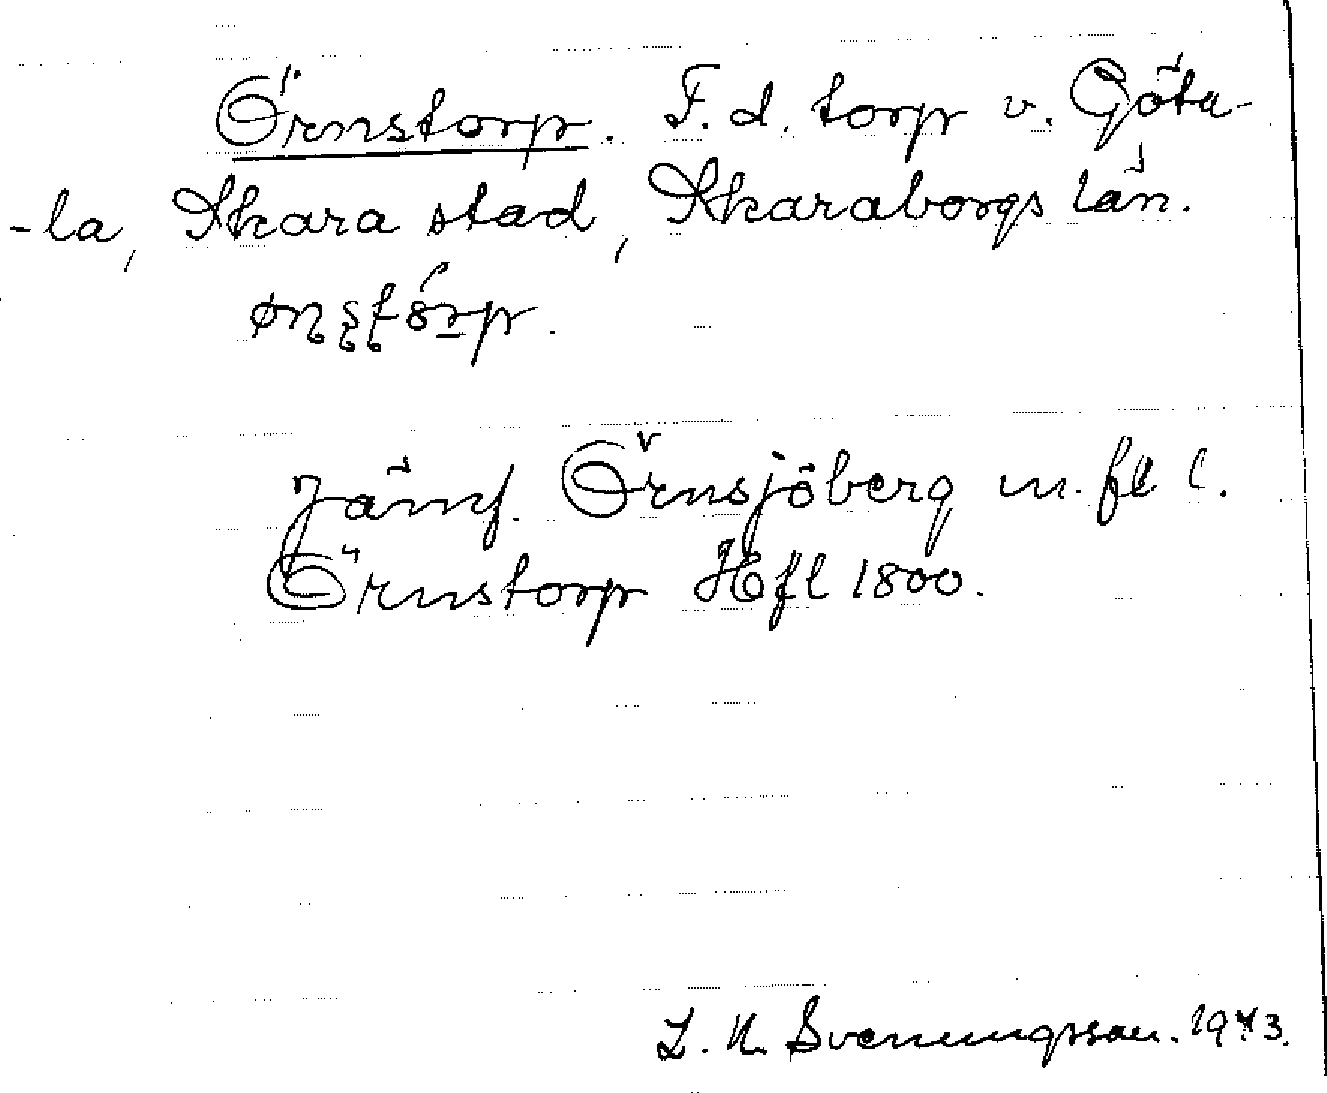 Örnstorp. F. d. torp v. Göta-
-la, Skara stad, Skaraborgs län.
Jämf. Örnsjöberg m. fl l.
Örnstorp Hfl 1800.
Svenungsson. 1943.